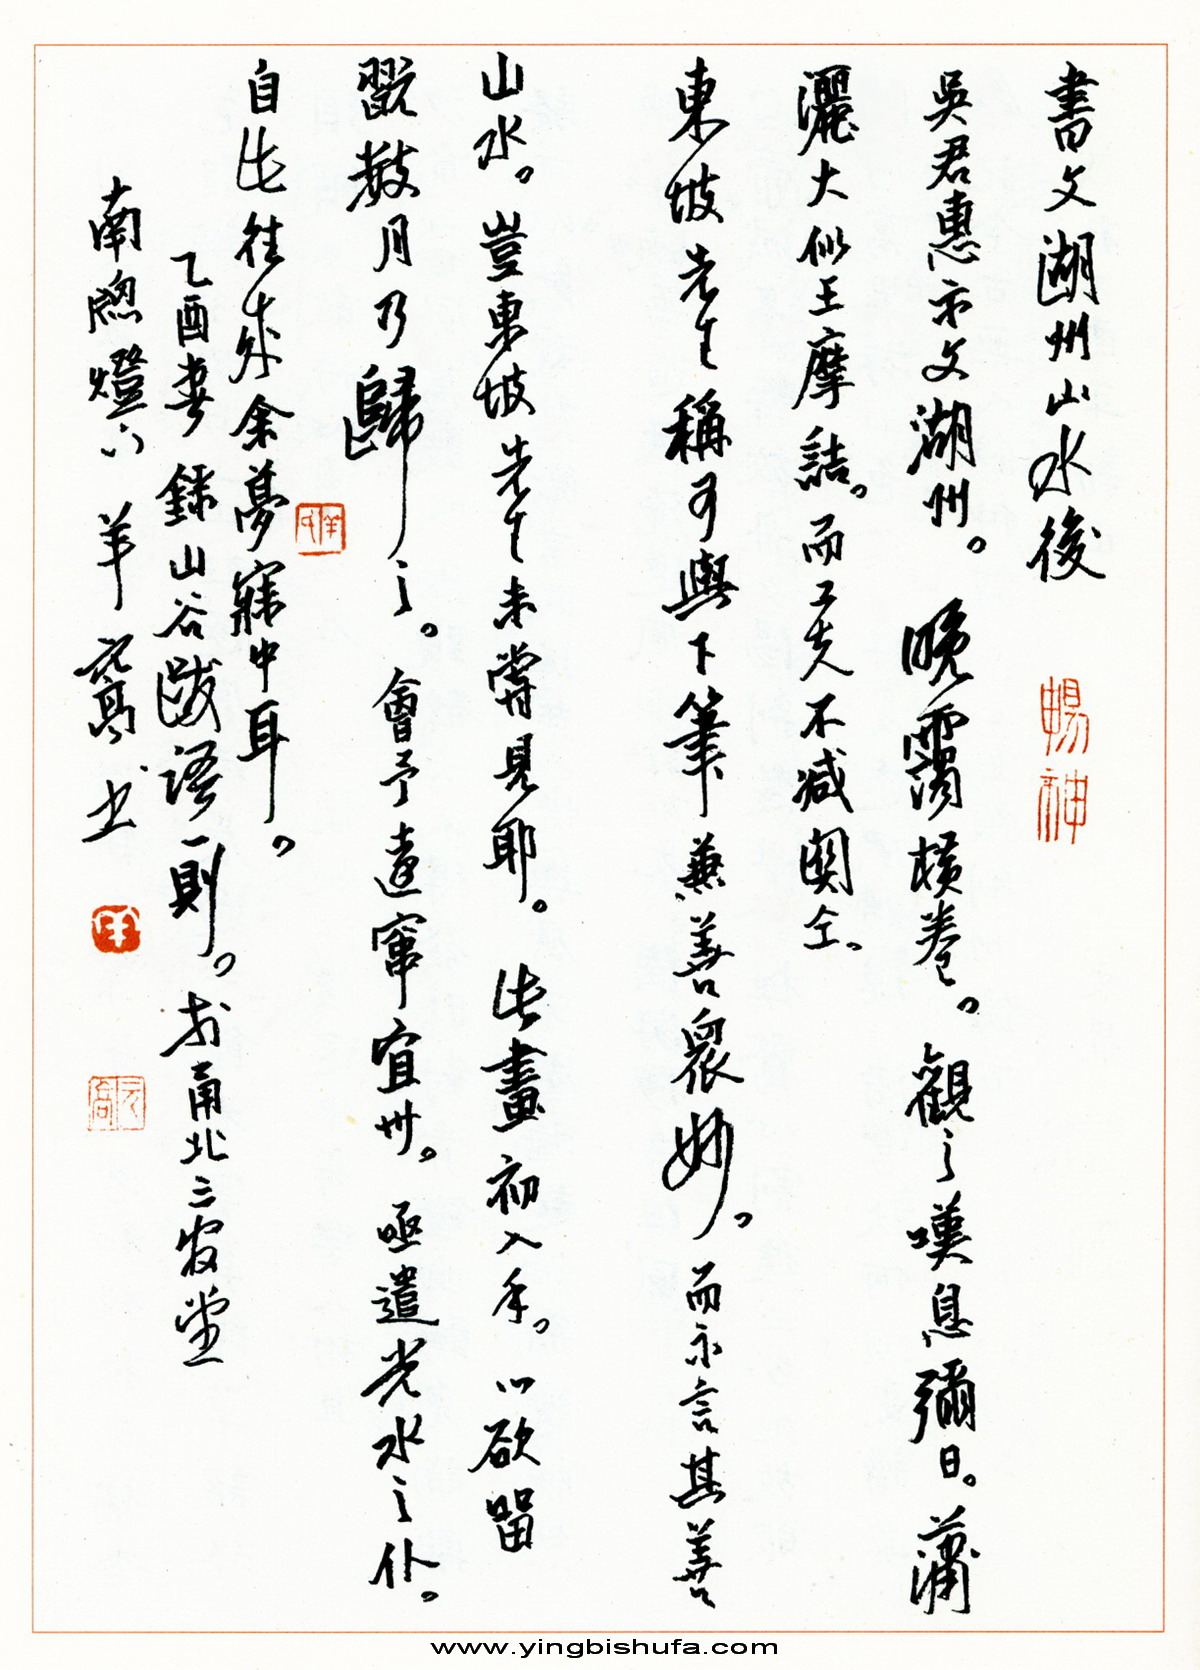 書文湖州山水後
暢神
吳君惠示文湖州。晚靄橫卷。觀之嘆息彌日。蕭
灑大似王摩詰。而工夫不減關仝。
東坡先生稱可與下筆兼善衆妙。而不言其善
山水。豈東坡先生未嘗見耶。此畫初入手。心欲留
翫數月乃歸之。會予遠竄宜州。亟遣光水之仆。
自此往來余夢寐中耳。
乙酉春錄山谷跋語一則。於甬北三宜堂
南窗燈下羊 書
www.yingbishufa.com